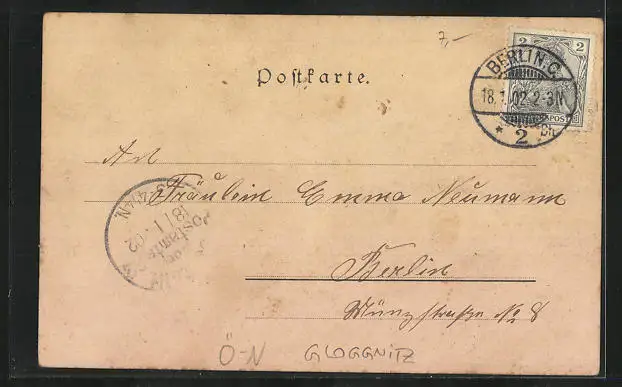 7,-
2 2
BERLIN.C.
18.1.02.2-3N
* 2 Bh.
Postkarte.
An
Fräulein Emma Neumann
3-4N
18/1.02
Postamts
Berlin
Münzstraße No 8
Ö-N GLOGGNITZ